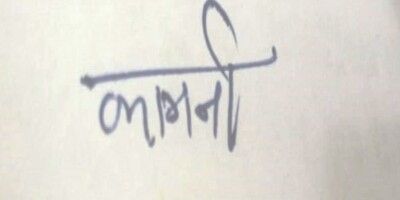 कामनी